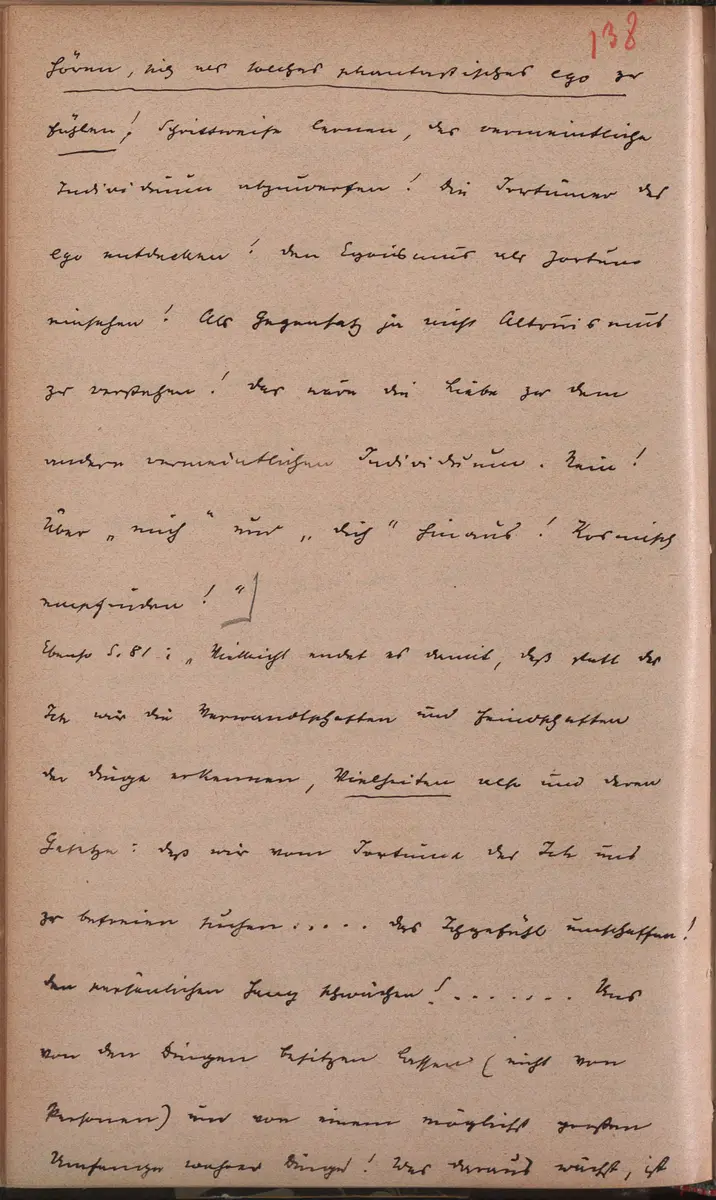 138
hören, sich als solches phantastisches ego zu
fühlen! Schrittweise lernen, das vermeintliche
Individuum abzuwerfen! Die Irrtümer des
ego entdecken! Den Egoismus als Irrtum
einsehen! Als Gegensatz ja nicht Altruismus
zu verstehen! Das wäre die Liebe zu dem
andern vermeintlichen Individuum. Nein!
Über „mich“ und „dich“ hinaus! Kosmisch
empfinden!“
Ebenso S. 81: „Vielleicht endet es damit, daß statt des
Ich wir die Verwandtschaften und Feindschaften
der Dinge erkennen, Vielheiten also und deren
Gesetze: daß wir vom Irrtume des Ich uns
zu befreien suchen..... das Ichgefühl umschaffen!
den persönlichen Hang schwächen!....... Uns
von den Dingen besitzen lassen (nicht von
Personen) und von einem möglichst großen
Umfange wahrer Dinge! Was daraus wächst, ist